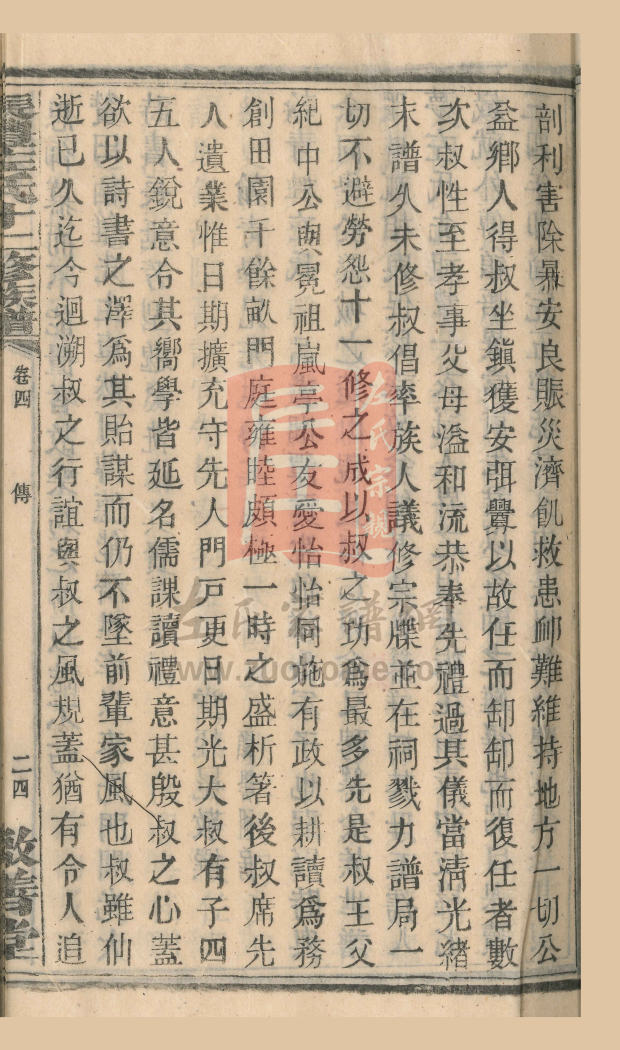 剖利害除暴安良賑災濟飢救患邺難維持地方一切公
益鄉人得叔坐鎮獲安弭釁以故任而卸卸而復任者數
次叔性至孝事父母溢和流恭奉先禮過其儀當清光緒
末譜久未修叔倡率族人議修宗牒並在祠戮力譜局一
切不避勞怨十一修之成以叔之功為最多先是叔王父
紀中公與冕祖嵐亭公友愛怡怡同施有政以耕讀為務
創田園千餘畝門庭雍睦頗極一時之盛析箸後叔席先
人遺業惟日期擴充守先人門戶更日期光大叔有子四
五人銳意令其嚮學皆延名儒課讀禮意甚殷叔之心蓋
欲以詩書之澤為其貽謀而仍不墜前輩家風也叔雖仙
逝已久迄今迴溯叔之行誼與叔之風規蓋猶有令人追
左氏十二修族譜 卷四 傳 二四 敦善堂
左氏宗親
左氏家譜網